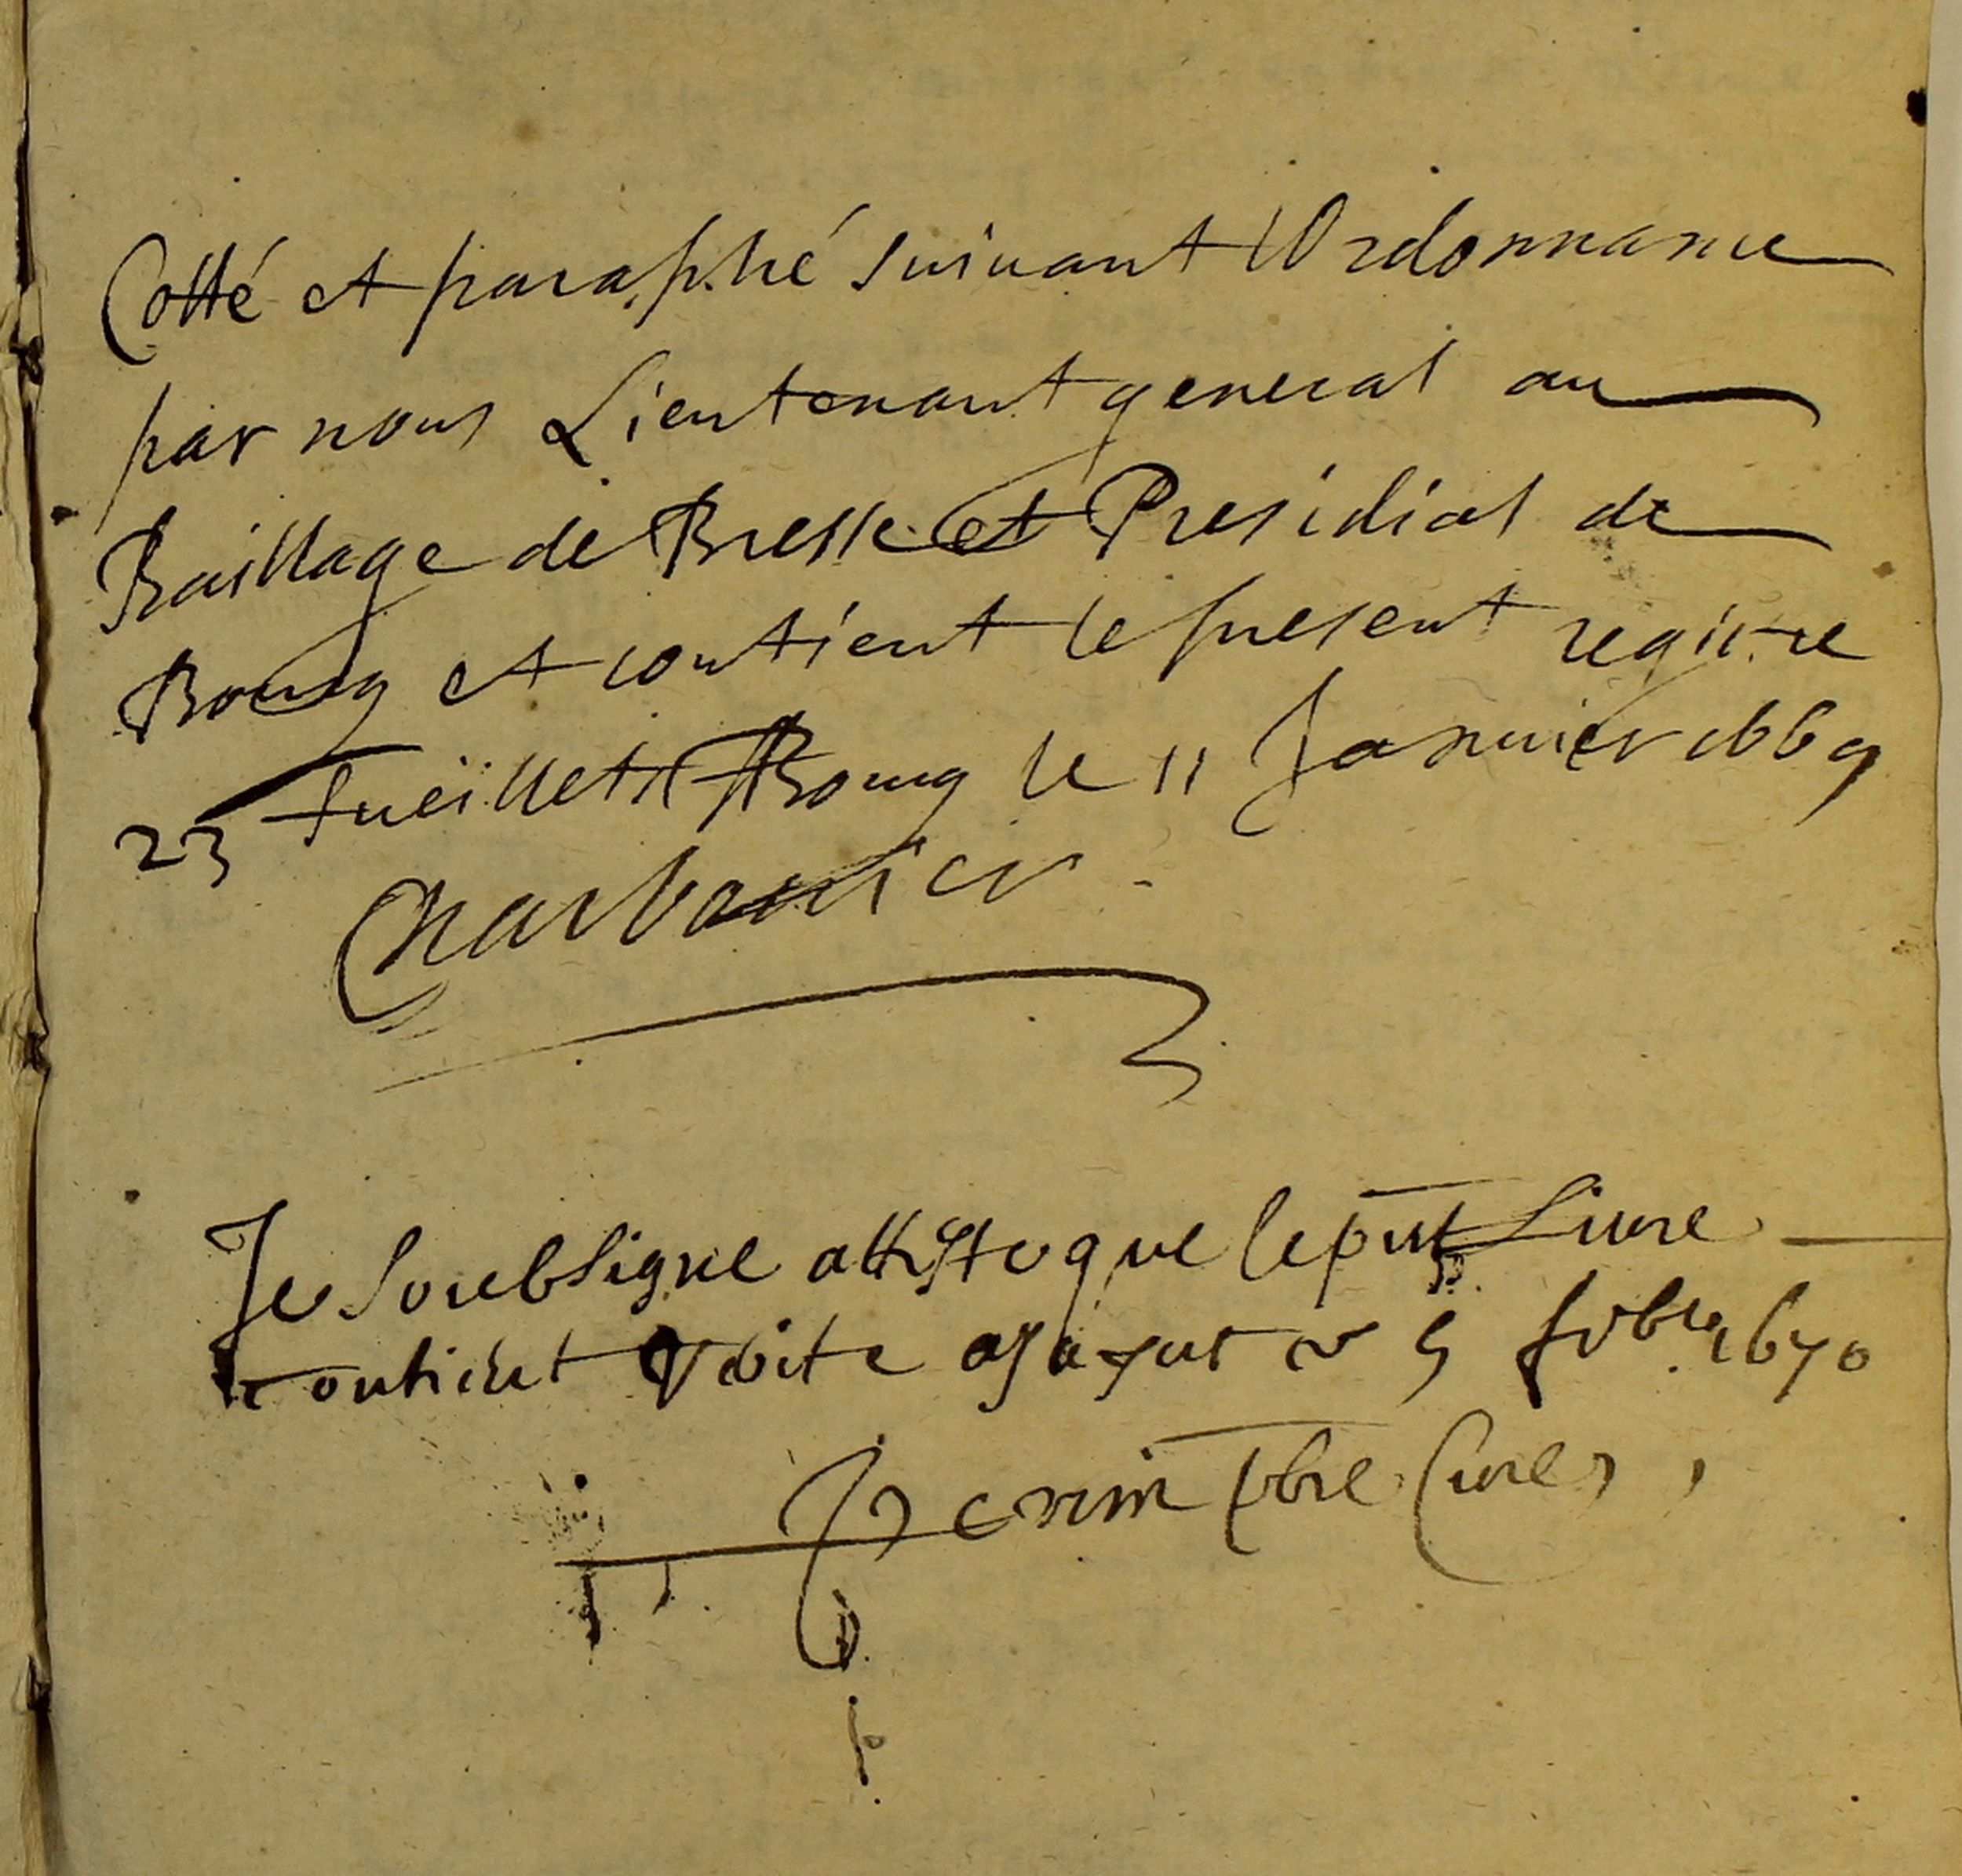 Cotté et paraphé suivant l'Ordonnance
par nous Lieutenant general au
Baillage de Bresse et Presidial de
Bourg et contient le present registre
23 fueïllets A Bourg le 11 Januier 1669
Charbonnier
Je Soubsigne atteste que le pnt Liure
contient verite a ce 5 febvr 1670
pbre Cure